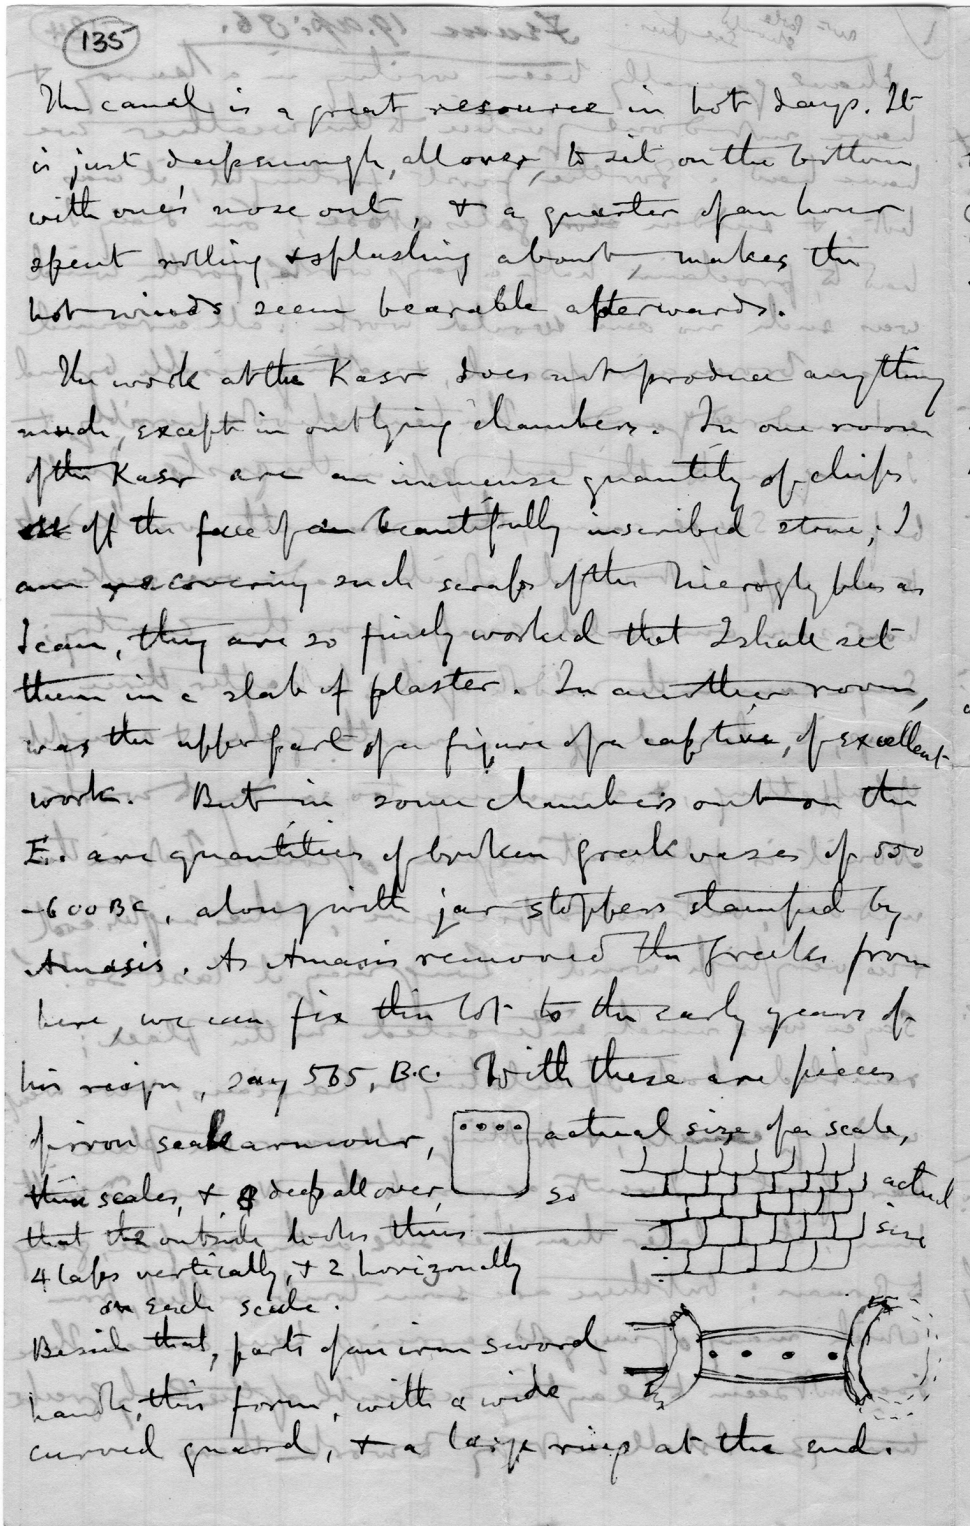 135
The canal is a great resource in hot days. It
is just deep enough, all over, to sit on the bottom
with one's nose out, & a quarter of an hour
spent rolling & splashing about, makes the
hot winds seem bearable afterwards.
The work at the Kasr does not produce anything
much, except in outlying chambers. In one room
of the Kasr are an immense quantity of chips
off the face of beautifully inscribed stone; I
am recovering such scraps of the hieroglyphs as
I can, they are so finely worked that I shall set
them in a slab of plaster. In another room,
was the upper part of a figure of a captive, of excellent
work. But in some chambers out on the
E. are quantities of broken Greek vases of 550
-600 BC, along with jar stoppers stamped by
Amasis. As Amasis removed the Greeks from
here, we can fix this lot to the early years of
his reign, say 565, B.C. With these are pieces
of iron scale armour, actual size of a scale,
thin scales, & 8 deep all over, so actual
that the outside looks thus size
4 laps vertically, & 2 horizonally
on each scale.
Beside that, parts of an iron sword
handle, this form, with a wide
curved guard, & a large ring at the end.